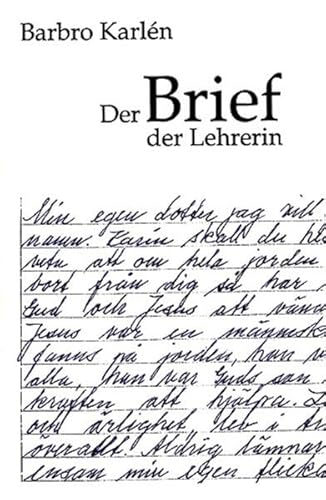 Barbro Karlén
Der Brief
der Lehrerin
Min egen dotter jag vill
namn. Karin skall du he
veta att om hela jorden
bort från dig så har
Gud och Jesus att vänd
Jesus var en människa
fanns på jorden, han v
alla, han var Guds son
kraften att hjälpa.
om ärlighet, lev i
överallt. Aldrig lämnar
ensam min egen flicka